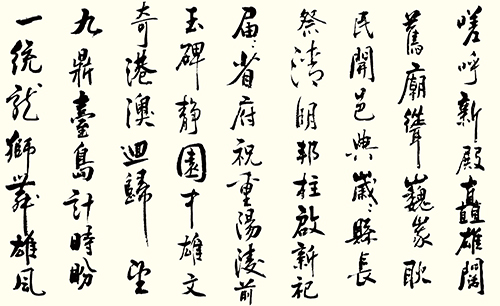 嗟呼新殿矗雄闊
舊廟聳巍
民開邑典歲々縣長
祭清明邦柱啟新祀
屆々省府祝重陽陵前
玉碑靜園才雄文
奇港澳迴歸望
九鼎臺島計時盼
一統龍獅舞雄風